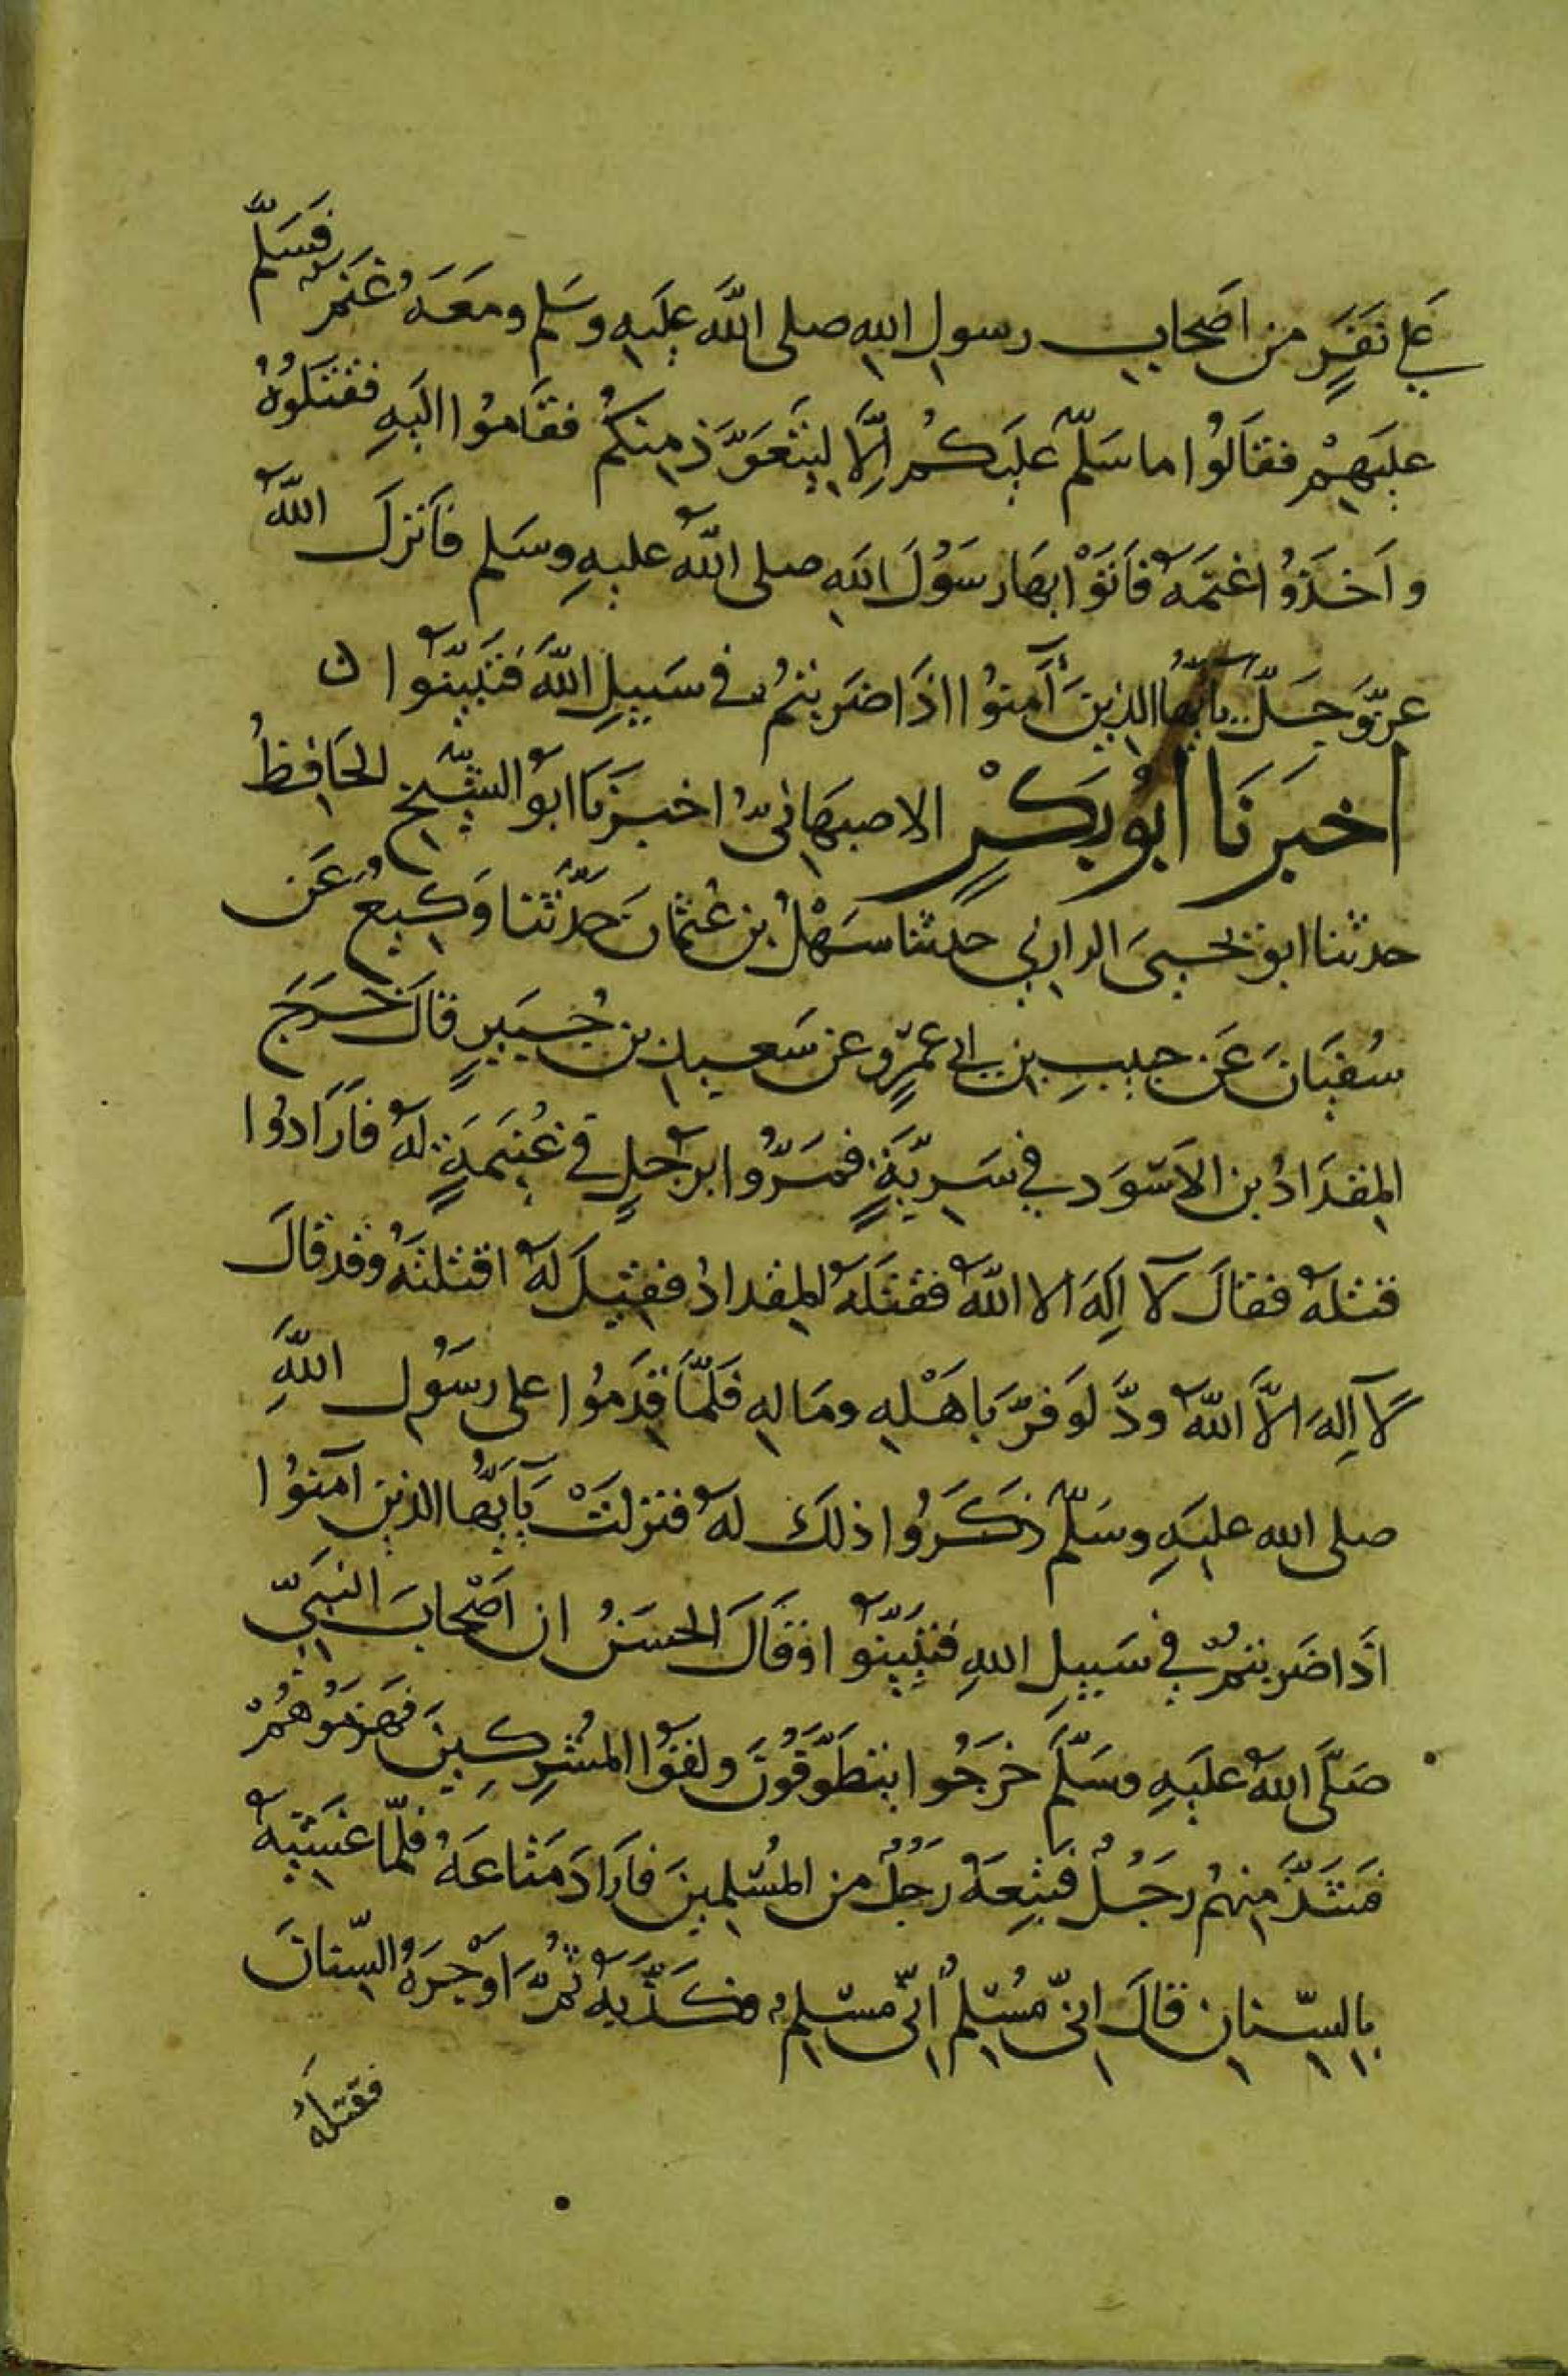 على نَفَرٍ من اصَحابِ رسولِ اللهِ صلى اللَّه عليَهِ وسَلم ومعَهَ غَنَمٌ فَسَلّم
عليَهِمْ فقالُوا ما سَلّم عليَكمُ اِلَّا ليَتَعَوَّذ منِكُم فقَامُوا اليَهِ فقتَلوُهُ
واَخذَوُا غنَمَهُ فاَتَوْا بهَا رسَوُلَ اللهِ صلى اللهُ عليهِ وسَلم فاَنزلَ اللهُ
عزّوَجَلّ يا ايّهُا الذينَ آمنوُا اذَا ضَربتمُ في سَبيلِ اللَّه فَتَبَيّنَوُا ن
اخبَرنَا ابُو بَكْرٍ الاصبهَانىّ اخبَرنَا ابوُ الشّيخ الحَافِظُ
حدثنا ابو يحيىَ الرازي حدثنا سَهْلُ بن عُثمانَ حَدّثَنا وَكيعُ عَن
سُفيَانَ عَن حبيبِ بن ابي عمرٍو عن سَعيد بن جُبَيرٍ قالَ خرَجَ
المِقدَادُ بن الاسَوَد في سَريّةٍَ فمَرّوُا برَجُلٍ في غُنَيمَةٍ لهُ فاَرَادُوا
قتلهُ فقالَ لآ اِلهَ الا اللهُ فقتَلهُ المِقدادُ فقيلَ لهُ اقتلتَهُ وقد قالَ
لآ اَلِهَ الاَّ اللهُ ودَّ لوَ فرَّ باهَلْهِ ومَالهِ فَلمَّا قدِمُوا على رسَوُلِ اللَّهِ
صلى الله عليَهِ وسَلّم ذكَرَوُا ذلكَ لهُ فنزلَتْ يآ ايَّهُا الذين آمنوُا
اذَا ضَربتمُ في سَبيلِ اللهِ فتَبَيّنوُا وَقالَ الحسَنُ ان اصَحْابَ النبيَّ
صَلّى اللهُ عليَهِ وسَلّمَ خرَجُوا يتَطوَّفوُنَ ولقوُا المُشركينَ فهَزموُهُمْ
فشَذَّ منِهُم رجَلُ فتبِعَهُ رَجُلُ من المُسلمينَ فاَرَادَ مَتاعَهُ فلمّا غَشيَهُ
بالسّنانِ قالَ انىّ مُسْلمُ انىّ مسْلمُ فكَذّبَهُ ثمُّ اَوْجَرَهُ السّنانَ
فقتلَهُ